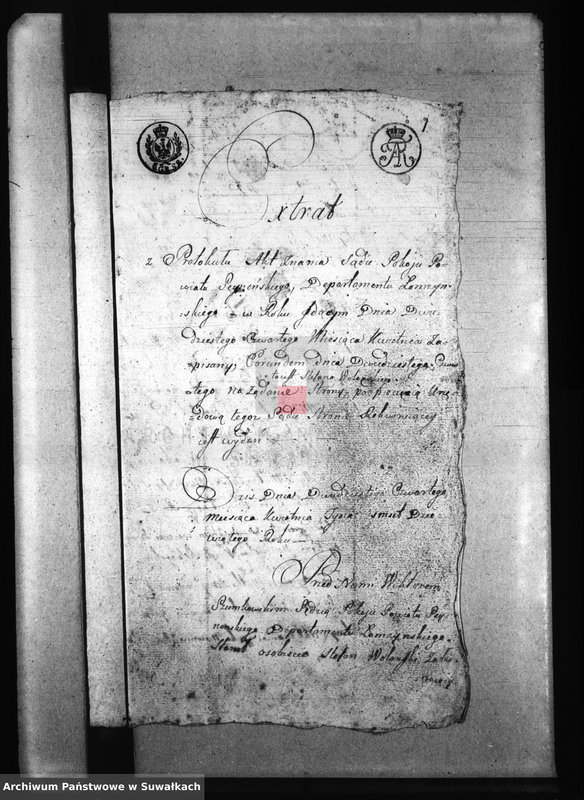 1
Extrat
z Protokułu Akt Znania Sądu Pokoju Po-
wiatu Seyneńskiego, Departamentu Łomżyń-
skiego w Roku Dnia Dwu-
dziestego Czwartego Miesiąca Kwietnia Za-
pisany, dnia Dwudziestego
tegoż Stefana
tego na żądanie Strony pod pieczęcią Urzę-
dową tegoż Sądu Stronie Rekwirującey
iest wydan
Dziś Dnia Dwudziestego Czwartego
Miesiąca Kwietnia Tysiąc ośmset Dzie-
wiątego Roku
Przed Nami Wiktorem
Sędzią Pokoju Powiatu Sey-
neńskiego Departamentu Łomżyńskiego
Stanął osobiście Stefan
Archiwum Państwowe w Suwałkach